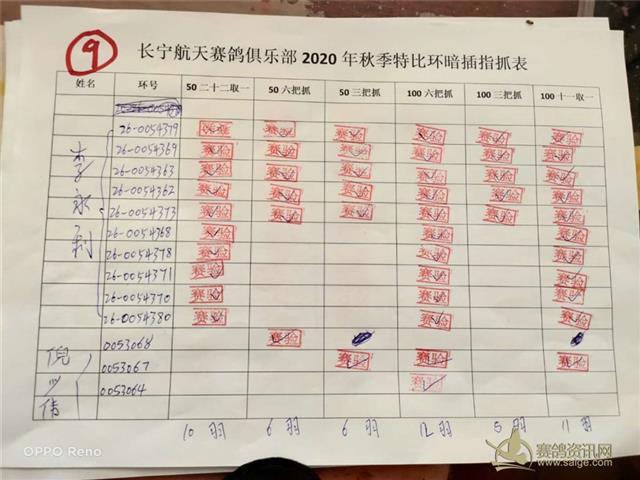 9
长宁航天赛鸽俱乐部 2020 年秋季特比环暗插指抓表
姓名 环号 50 二十二取一 50 六把抓 50 三把抓 100 六把抓 100 三把抓 100 十一取一
26-0054379 赛验 赛验 赛验 赛验 赛验 赛验
26-0054369 赛验 赛验 赛验 赛验 赛验 赛验
李永利 26-0054363 赛验 赛验 赛验 赛验 赛验 赛验
26-0054362 赛验 赛验 赛验 赛验 赛验 赛验
26-0054373 赛验 赛验 赛验 赛验 赛验 赛验
26-0054368 赛验 赛验 赛验
26-0054378 赛验 赛验 赛验
26-0054371 赛验 赛验 赛验
26-0054370 赛验 赛验 赛验
26-0054380 赛验 赛验 赛验
0053068 赛验
倪 0053067 赛验 赛验 赛验
0053064 赛验
10羽 6羽 6羽 12羽 5羽 11羽
OPPO Reno
赛鸽资讯网
www.saige.com